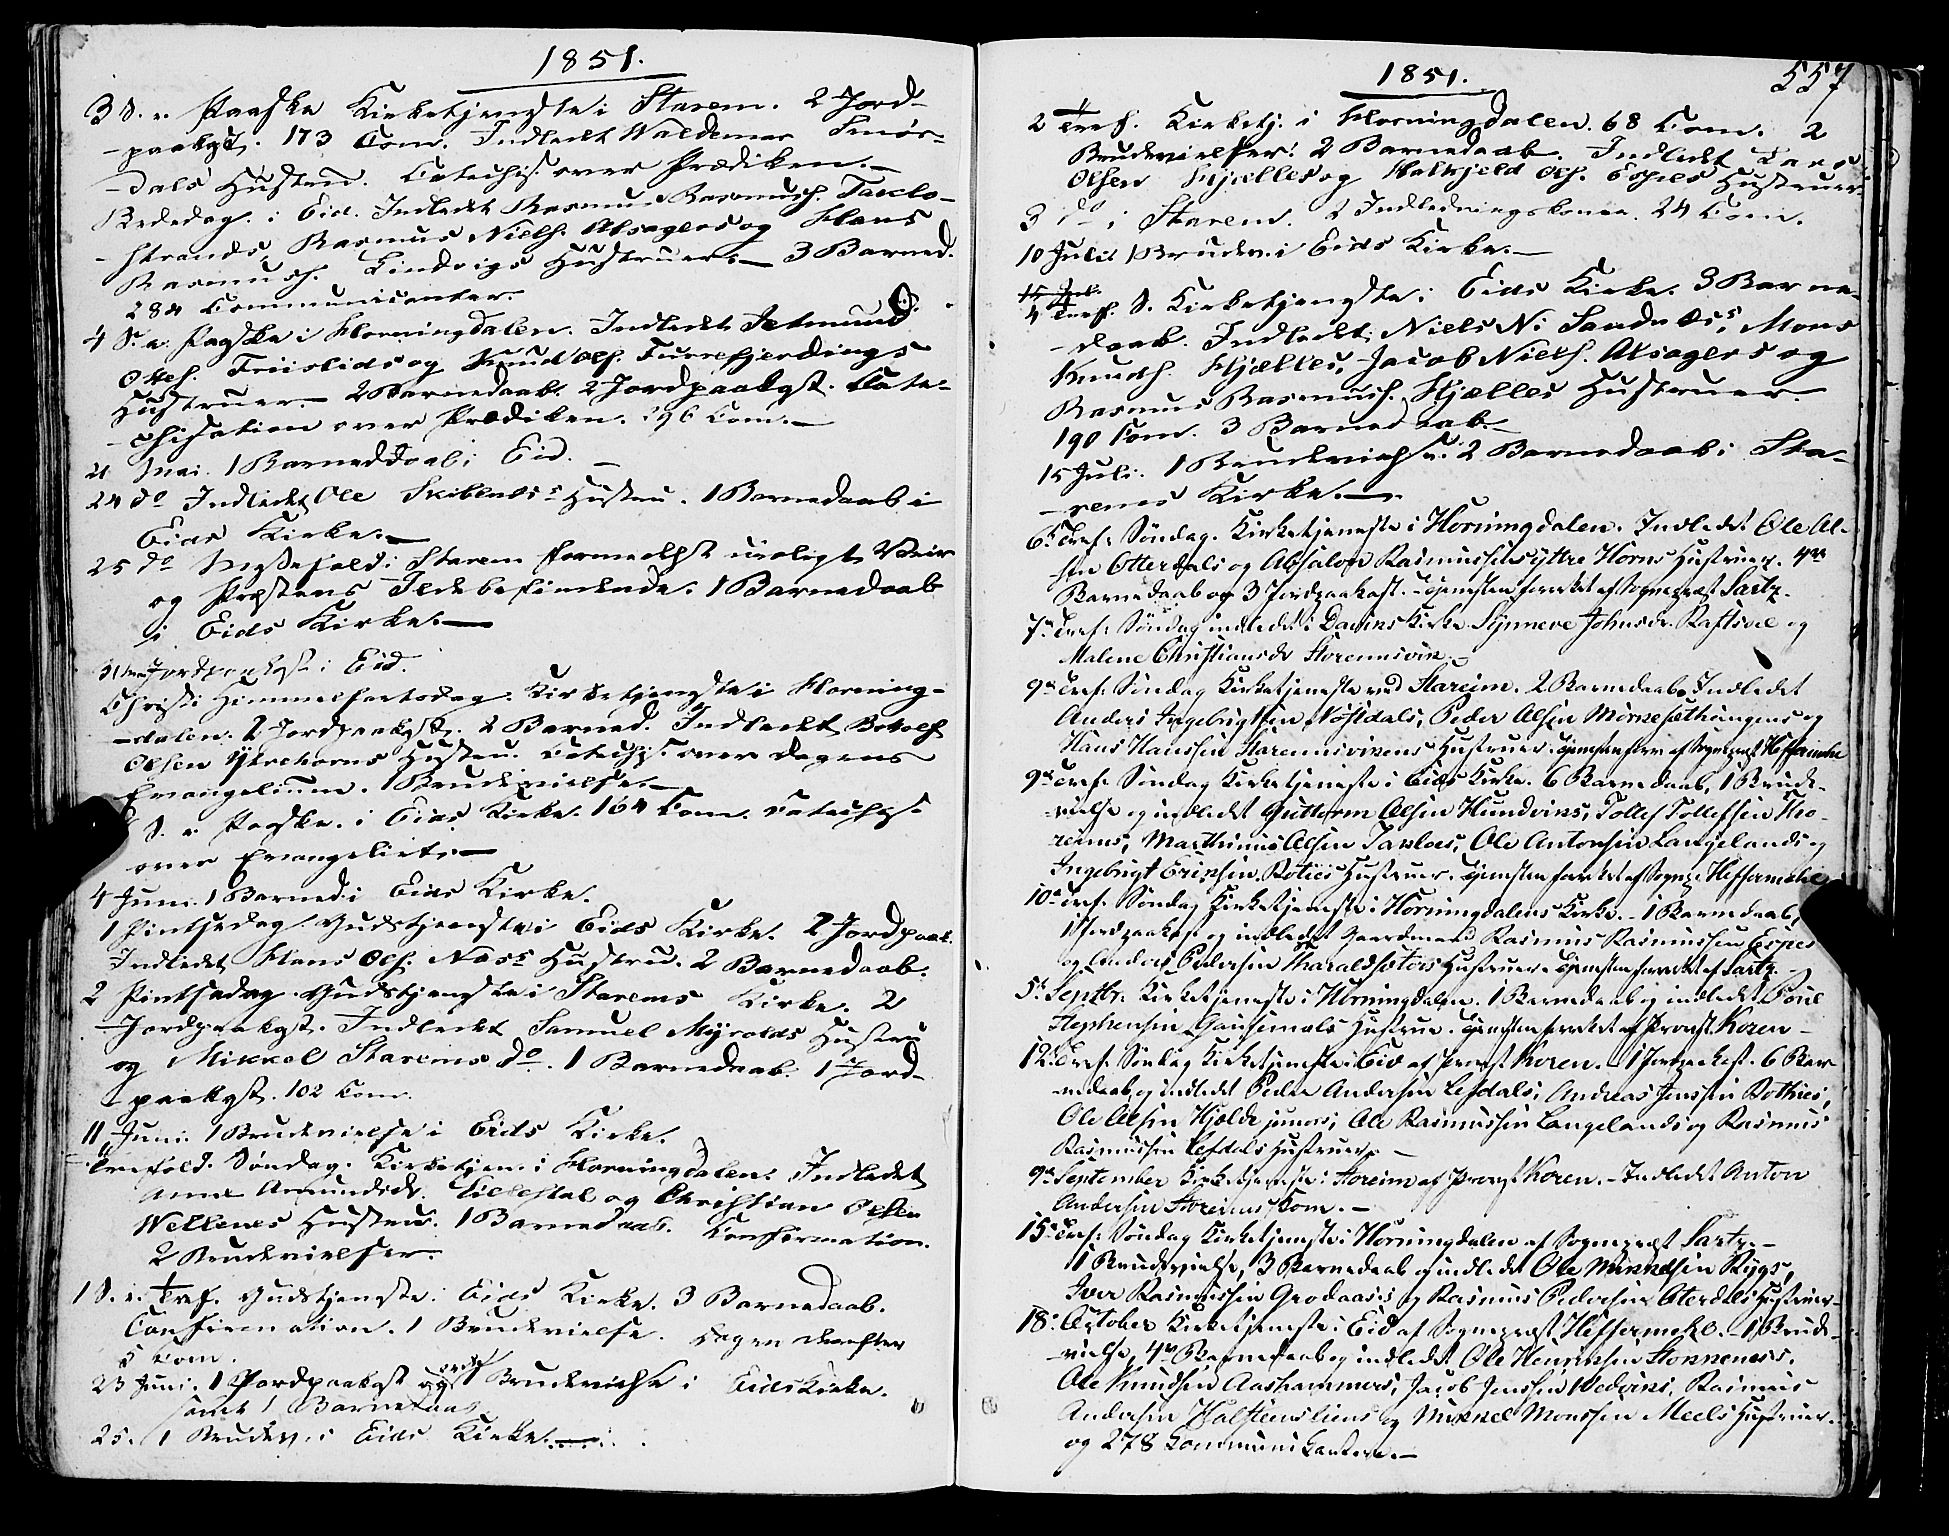 1851.
3 S. e. Paaske Kirketjeneste i Starem. 2 Jord-
-paakgst. 173 Com. Indledt Waldemar Smör-
-dals Hustru. Catechis. over Prædiken.—
Bededag. i Eid. Indledt Rasmus Rasmush. Taxlo-
-strands, Rasmus Nielh. Alsagers og Hans
Rasmush. Lindvigs Hustruer.— 3 Barned.
284 Communicanter.
4 S. e. Paaske i Horningdalen. Indledt
Friislids og Knud Olh. Furrefjerdings
Hustruer.— 2 Barnedaab. 2 Jordpaakgst. Cate-
-chisation over Prædiken. 296 Com.—
21 Mai. 1 Barnedaab i Eid.—
24 do Indledt Ole Hustru. 1 Barnedaab i
Eids Kirke.—
25 do Messefald i Starem formedelst uroligt Veir
og Præstens Ildebefindende. 1 Barnedaab
i Eids Kirke.—
Jordpaakst. i Eid.
Christi Himmelfartsdag. Kirketjengste i Horning-
-dalen. 2 Jordpaakgst. 2 Barned. Indledt Botolf
Olsen Ytrehorns Hustru. Catechis. over Dagens
Evangelium. 1 Brudevielse.—
6 S. e. Paaske. i Eids Kirke. 164 Com. Catechis.
over Evangeliet.—
4 Juni. 1 Barned. i Eids Kirke.
1 Pintsedag. Gudstjeneste i Eids Kirke. 2 Jordpaak.
Indledt Hans Olh. Nass Hustru. 2 Barnedaab.
2 Pintsedag. Gudstjengste i Starems Kirke. 2
Jordpaakgst. Indledt Samuel Myrolds Hustru
og Mikkel Starems do. 1 Barnedaab. 1 Jord-
-paakgst. 102 Com.
11 Juni. 1 Brudevielse i Eids Kirke.
Trefold. Söndag. Kirketjen. i Horningdalen. Indledt
Amundsdr. og Christian Olsen
Hustru. 1 Barnedaab. Konfirmation.
2 Brudevielser.
1 S. e. Tref. Gudstjengste i Eids Kirke. 3 Barnedaab.
Confirmation. 1 Brudevielse. Dagen derefter
5 Com.
23 Juni. 1 Jordpaakgst og 1 Brudevielse i Eids Kirke.
samt 1 Barnedaab
25. 1 Brudev. i Eids Kirke.—
1851.
557
2 Tref. Kirketj. i Horningdalen. 68 Com. 2
Brudevielser. 2 Barnedaab. Indledt Lars
Olsen Hjælles og Olh. Espes Hustruer
3 do i Starem. 2 Indledningskoner. 24 Com.
10 Juli 1 Brudev. i Eids Kirke.—
4 Tref. S. Kirketjengste i Eids Kirke. 3 Barne-
-daab. Indledt Niels Ni Sandnes, Mons
Knudh. Hjælles, Jacob Nielh. Alsagers og
Rasmus Rasmush. Hjælles Hustruer.
190 Com. 3 Barnedaab.—
15 Juli. 1 Brudevielse. 2 Barnedaab i Sta-
-rems Kirke.—
6te Tref. Söndag. Kirketjeneste i Horningdalen. Indledet Ole Ol-
sen Otterdals og Absalon Rasmussen yttre Horns Hustruer. 4re
Barnedaab og 3 Jordpaakast. - Tjenesten forrettet af Sognepræst Sartz.
7de Tref. Söndag indledet i Davins Kirke Synneve Johnsdr. Raftsvee og
Malene Christiansdr Storemsvik.—
9de Tref. Söndag Kirketjeneste ved Stareim. 2 Barnedaab. Indledet
Anders Ingebrigtsen Nöstdals, Peder Olsen og
Hans Hanssen Staremsvikens Hustruer. Tjenesten forr. af Sognepræst Heffermehl
9de Tref. Söndag Kirketjeneste i Eids Kirke. 6 Barnedaab, 1 Brude-
-vielse og indledet Guttorm Olsen Hundvins, Tollef Tollefsen Tho-
reims, Marthinus Olsen Taxloes, Ole Antonsen Langelands og
Ingebrigt Eriksen Roties Hustruer. Tjenesten forrettet af Sognep. Heffermehl
10de Tref. Söndag Kirketjeneste i Horningdalens Kirke. - 1 Barnedaab,
1 Jordpaakast og indledet Gaardmand Rasmus Rasmussen Espes
og Anders Pedersen Haraldsæters Hustruer. Tjenesten forrettet af Sartz.
5te Septbr. Kirketjeneste i Horningdalen. 1 Barnedaab og indledet Poul
Stephensen Gausemels Hustrue. Tjenesten forrettet af Provst Koren.—
12te Tref. Söndag Kirketjeneste i Eid af Provst Koren. - 1 Jordpaakast. 6 Bar-
-nedaab, og indledet Peder Andersen Lefdals, Andreas Jenssen Rothies,
Ole Olsen Hjelle junors, Ole Rasmussen Langelands og Rasmus
Rasmussen Lefdals Hustruer.—
9de September Kirketjeneste i Storeim af Provst Koren. - Indledet Anton
Andersen Storeims Kone.—
15de Tref. Söndag Kirketjeneste i Horningdalen af Sognepræst Sartz.—
1 Brudevielse, 3 Barnedaab og indledet Ole Mikkelsen Rygs,
Iver Rasmussen Grodaas's og Rasmus Pedersen Oterdals Hustruer.
18de October Kirketjeneste i Eid af Sognepræst Heffermehl. - 1 Brude-
-vielse, 4re Barnedaab og indledet Ole Henriksen Stokkenes's,
Ole Knudsen Aashammers, Jacob Jenssen Nedvins, Rasmus
Andersen Halsteensliens og Mikkel Monssen Meels Hustruer.
og 278 Communikantere.—